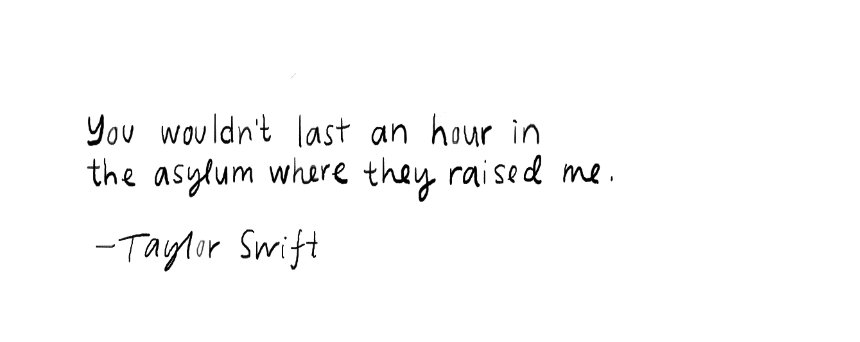 You wouldn't last an hour in
the asylum where they raised me.
-Taylor Swift